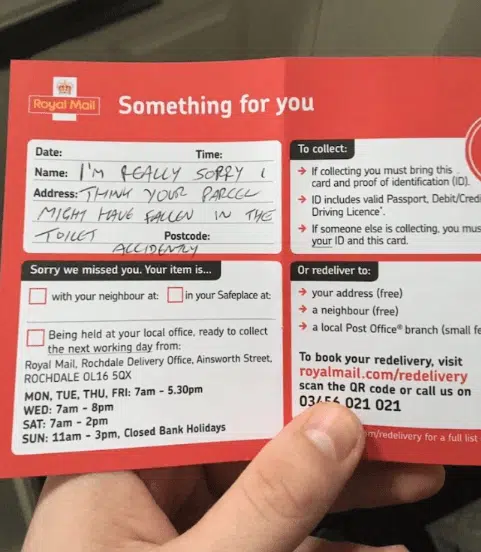 Royal Mail
Something for you
Date: Time:
Name: I'M REALLY SORRY I
Address: THINK YOUR PARCEL
MIGHT HAVE FALLEN IN THE
TOILET Postcode:
ACCIDENTLY
Sorry we missed you. Your item is...
with your neighbour at: in your Safeplace at:
Being held at your local office, ready to collect
the next working day from:
Royal Mail, Rochdale Delivery Office, Ainsworth Street,
ROCHDALE OL16 5QX
MON, TUE, THU, FRI: 7am - 5.30pm
WED: 7am - 8pm
SAT: 7am - 2pm
SUN: 11am - 3pm, Closed Bank Holidays
To collect:
→ If collecting you must bring this
card and proof of identification (ID).
→ ID includes valid Passport, Debit/Credi
Driving Licence*.
→ If someone else is collecting, you mus
your ID and this card.
Or redeliver to:
→ your address (free)
→ a neighbour (free)
→ a local Post Office® branch (small fe
To book your redelivery, visit
royalmail.com/redelivery
scan the QR code or call us on
03456 021 021
m/redelivery for a full list